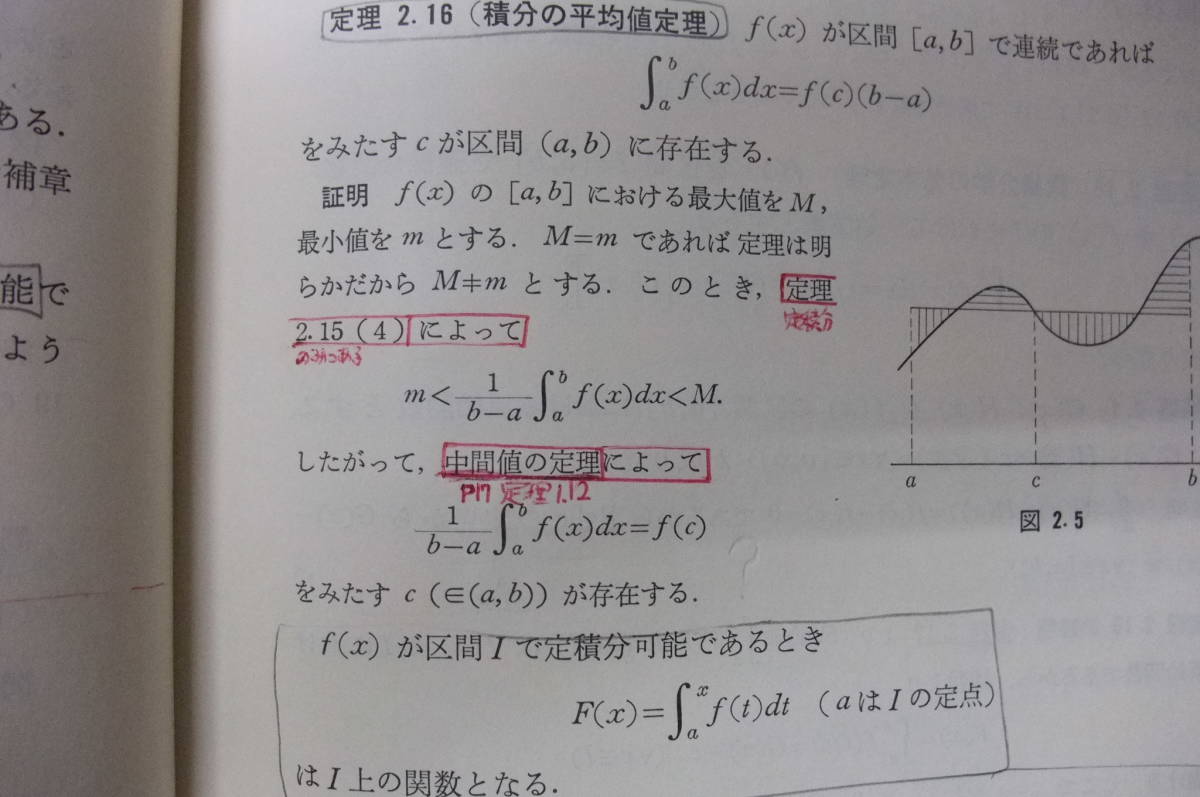 定理 2.16（積分の平均値定理） f(x) が区間 [a, b] で連続であれば
∫_a^b f(x)dx=f(c)(b−a)
をみたす c が区間 (a, b) に存在する.
証明 f(x) の [a, b] における最大値を M,
最小値を m とする. M=m であれば定理は明
らかだから M≠m とする. このとき, 定理
定積分
2.15 (4) によって
m< 1/(b−a) ∫_a^b f(x)dx<M.
したがって, 中間値の定理によって
P17 定理1.12
1/(b−a) ∫_a^b f(x)dx=f(c)
?
をみたす c (∈(a, b)) が存在する.
f(x) が区間 I で定積分可能であるとき
F(x)=∫_a^x f(t)dt （a は I の定点）
は I 上の関数となる.
a c b
図 2.5
ある.
補章
能で
よう